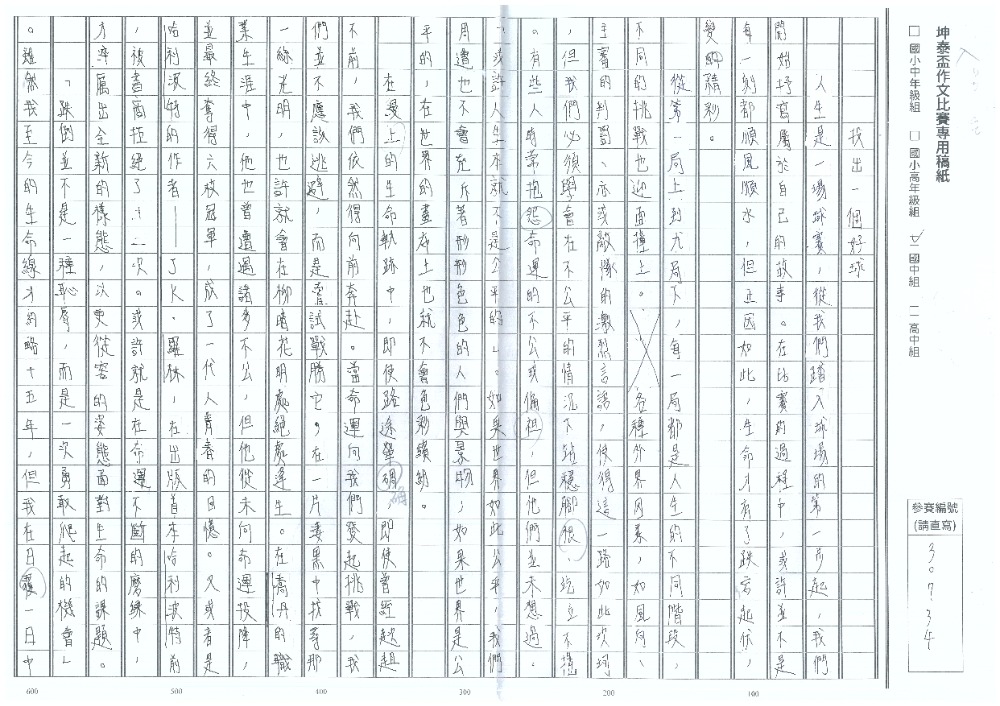 坤泰盃作文比賽專用稿紙
□國小中年級組 □國小高年級組 ☑國中組 □高中組
參賽編號
(請直寫)
30734
找出一個好球
人生是一場球賽,從我們踏入球場的第一步起,我們
開始抒寫屬於自己的故事。在比賽的過程中,或許並不是
每一躬都順風順水,但正因如此,生命才有了跌宕起伏,
變的精彩。
從第一局上到九局下,每一局都是人生的不同階段,
不同的挑戰也迎面撞上。各種外界因素,如風向、
主審的判罰、亦或敵隊的激烈言語,使得這一路如此坎坷
,但我們必須學會在不公平的情況下站穩腳根,屹立不搖
。有些人時常抱怨命運的不公或偏袒,但他們並未想過。
「或許人生本就不是公平的」。如果世界如此公平,我們
周遭也不會存在著形形色色的人們與景物;如果世界是公
平的,在世界的畫布上也就不會色彩繽紛。
在漫上的生命軌跡中,即使路途坐碉,即使曾經趑趄
不前,我們依然得向前奔赴。當命運向我們發起挑戰,我
們並不應該逃避,而是嘗試戰勝它。在一片漆黑中找尋那
一絲光明,也許就會在柳暗花明處絕處逢生。在喬丹的職
業生涯中,他也曾遭遇諸多不公,但他從未向命運投降,
並最終奪得六枚冠軍,成了一代人青春的回憶。又或者是
哈利波特的作者——J.K.羅琳,在出版首本哈利波特前
,被書商拒絕了十二次。或許就是在命運不斷的磨練中,
才淬厲出全新的樣態,次更從容的姿態面對生命的課題。
「跌倒並不是一種恥辱,而是一次勇敢爬起的機會」
。雖然我至今的生命線才約略十五年,但我在日覆一日中
100
200
300
400
500
600